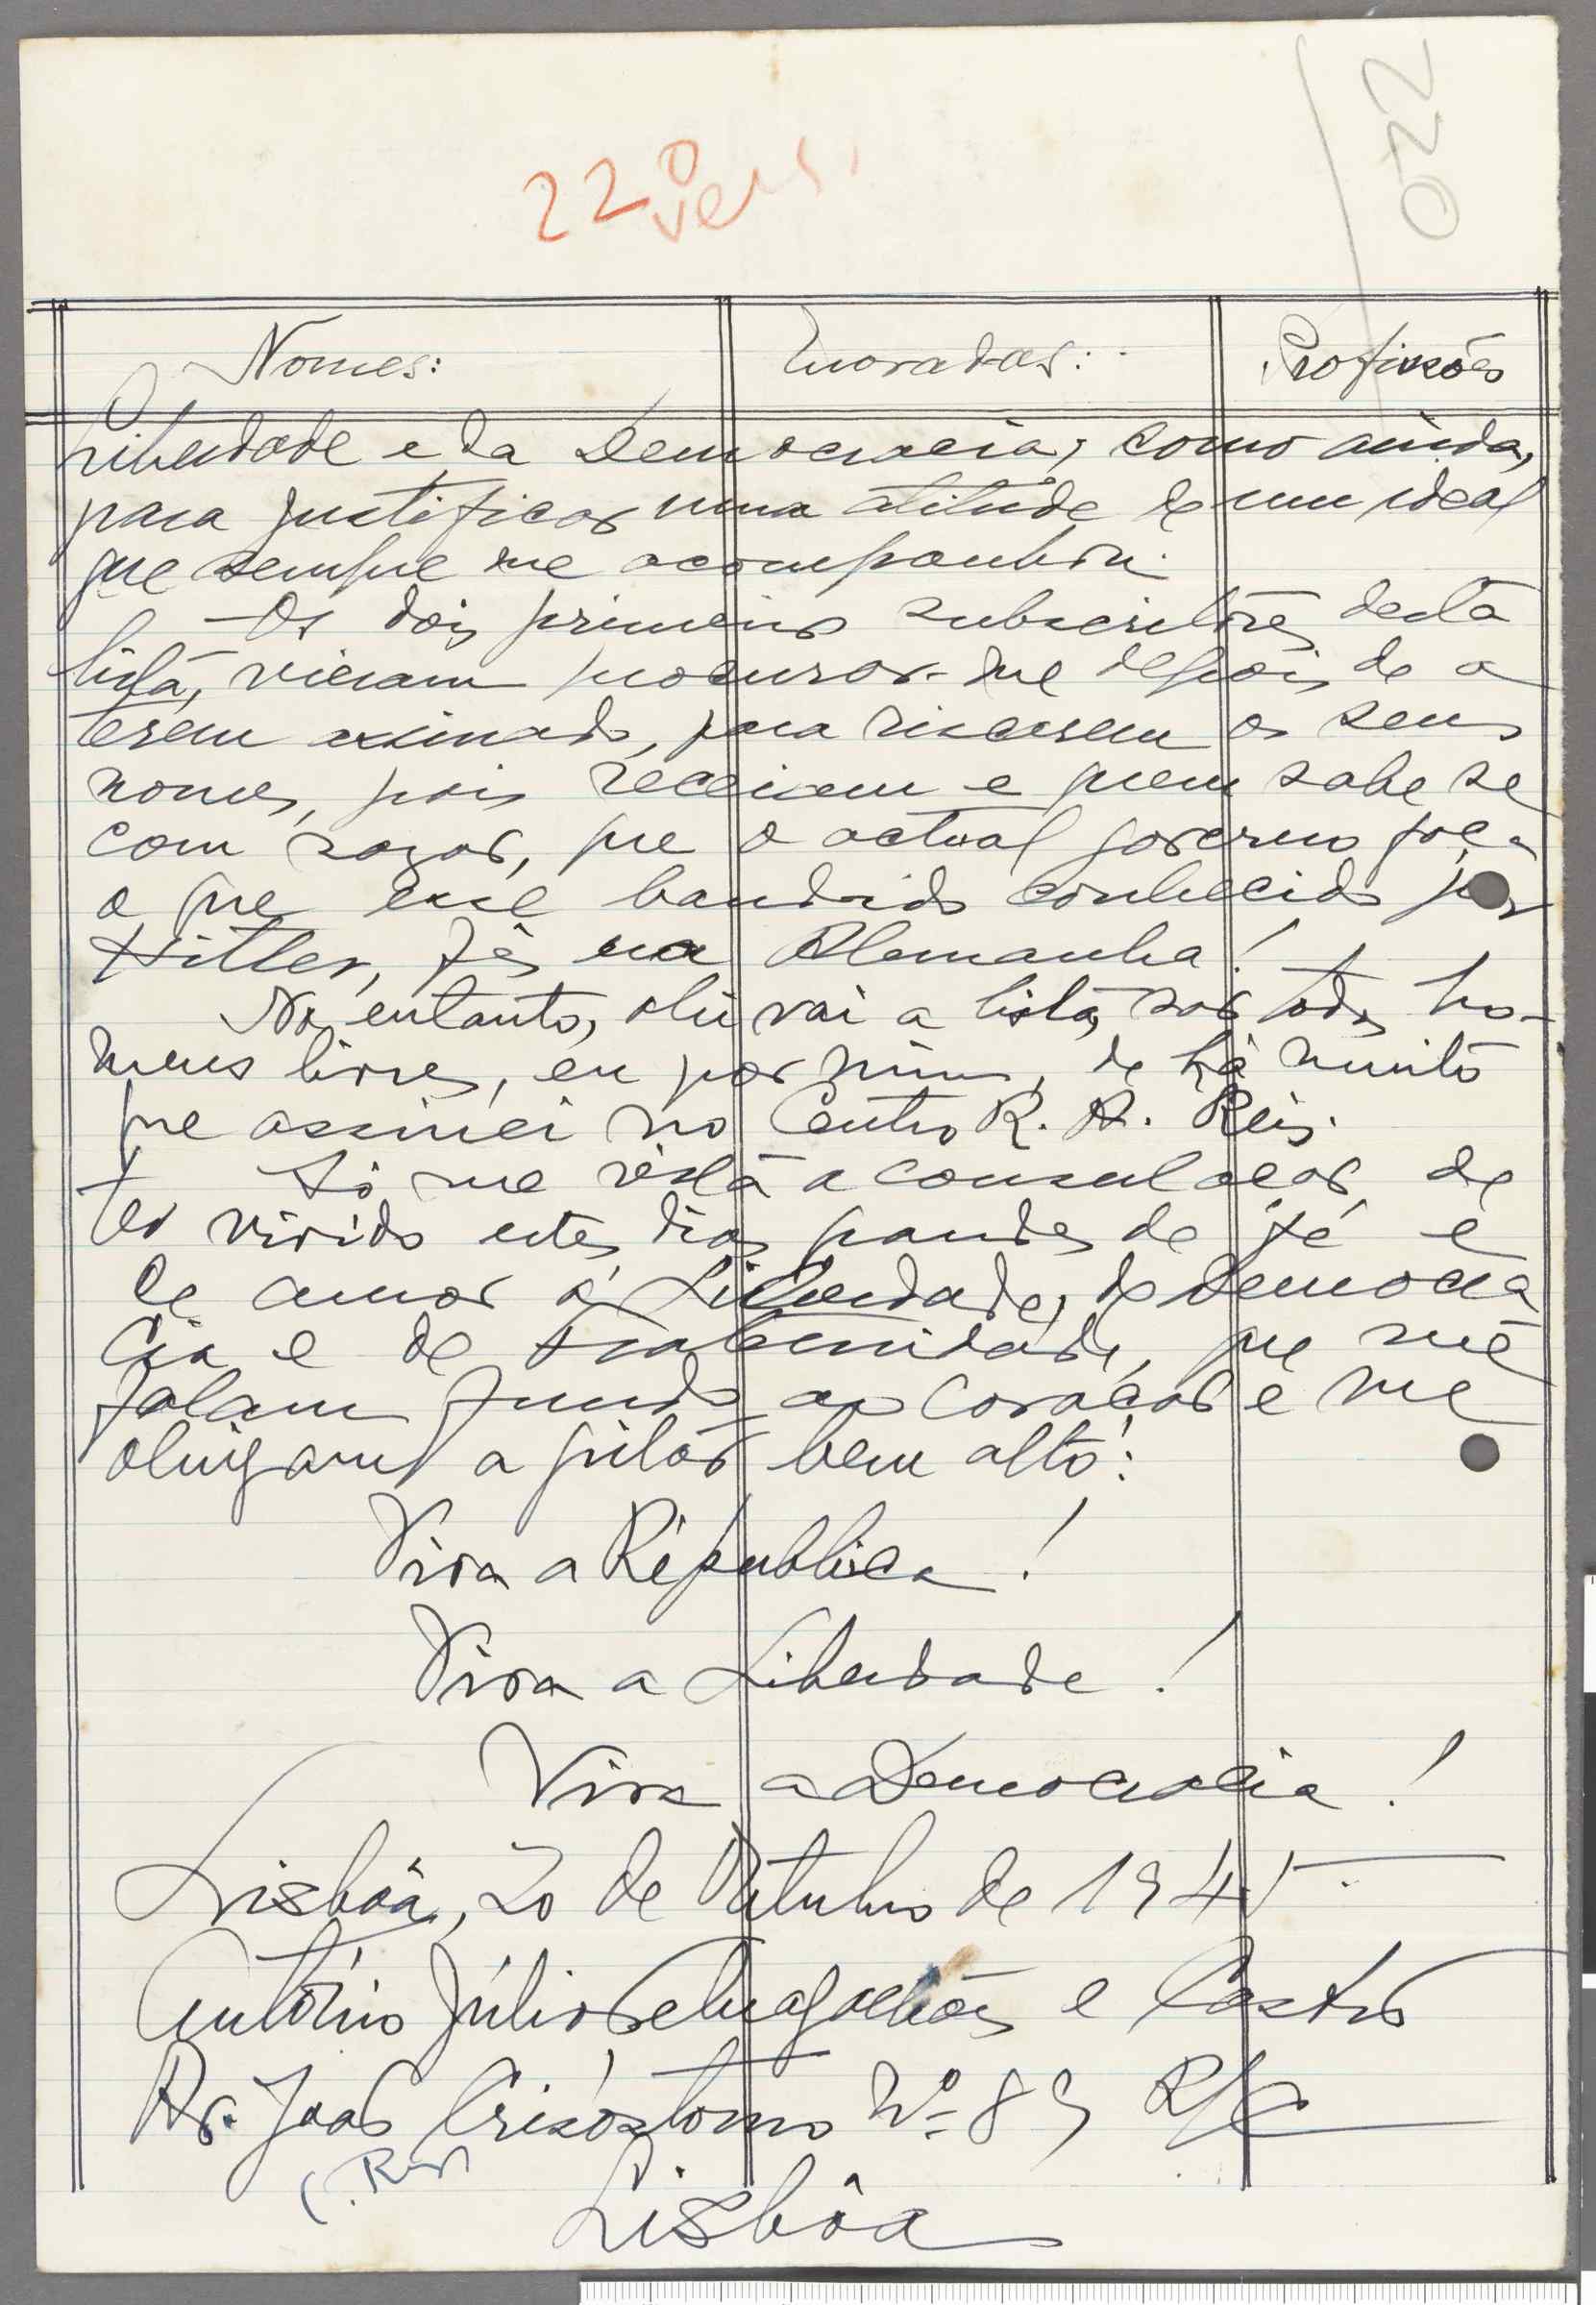 220
22º
vers.
Nomes: Moradas: Profissões
Liberdade e da Democracia; como ainda,
para justificar uma atitude de um ideal
que sempre me acompanhou.
Os dois primeiros subscritores desta
lista, vieram procurar-me depois de a
terem assinado, para riscarem os seus
nomes, pois receiavam e quem sabe se
com razão, que o actual governo faça
o que esse bandido conhecido por
Hitler, fês na Alemanha!
No entanto, ahi vai a lista, são todos ho-
mens livres, eu por mim, de há muito
que assinei no Centro R. A. Reis.
Só me résta a consulação de
ter vivido estes dias grandes de fé e
de amor á Liberdade, de Democra
cia e de fraternidade, que me
falam fundo ao coração e me
obrigam a gritar bem alto:
Viva a Républica!
Viva a Liberdade!
Viva a Democracia!
Lisbôa, 20 de Outubro de 1945
António Júlio de Magalhães e Castro
Av. João Crisóstomo Nº 89 R/C
Lisbôa